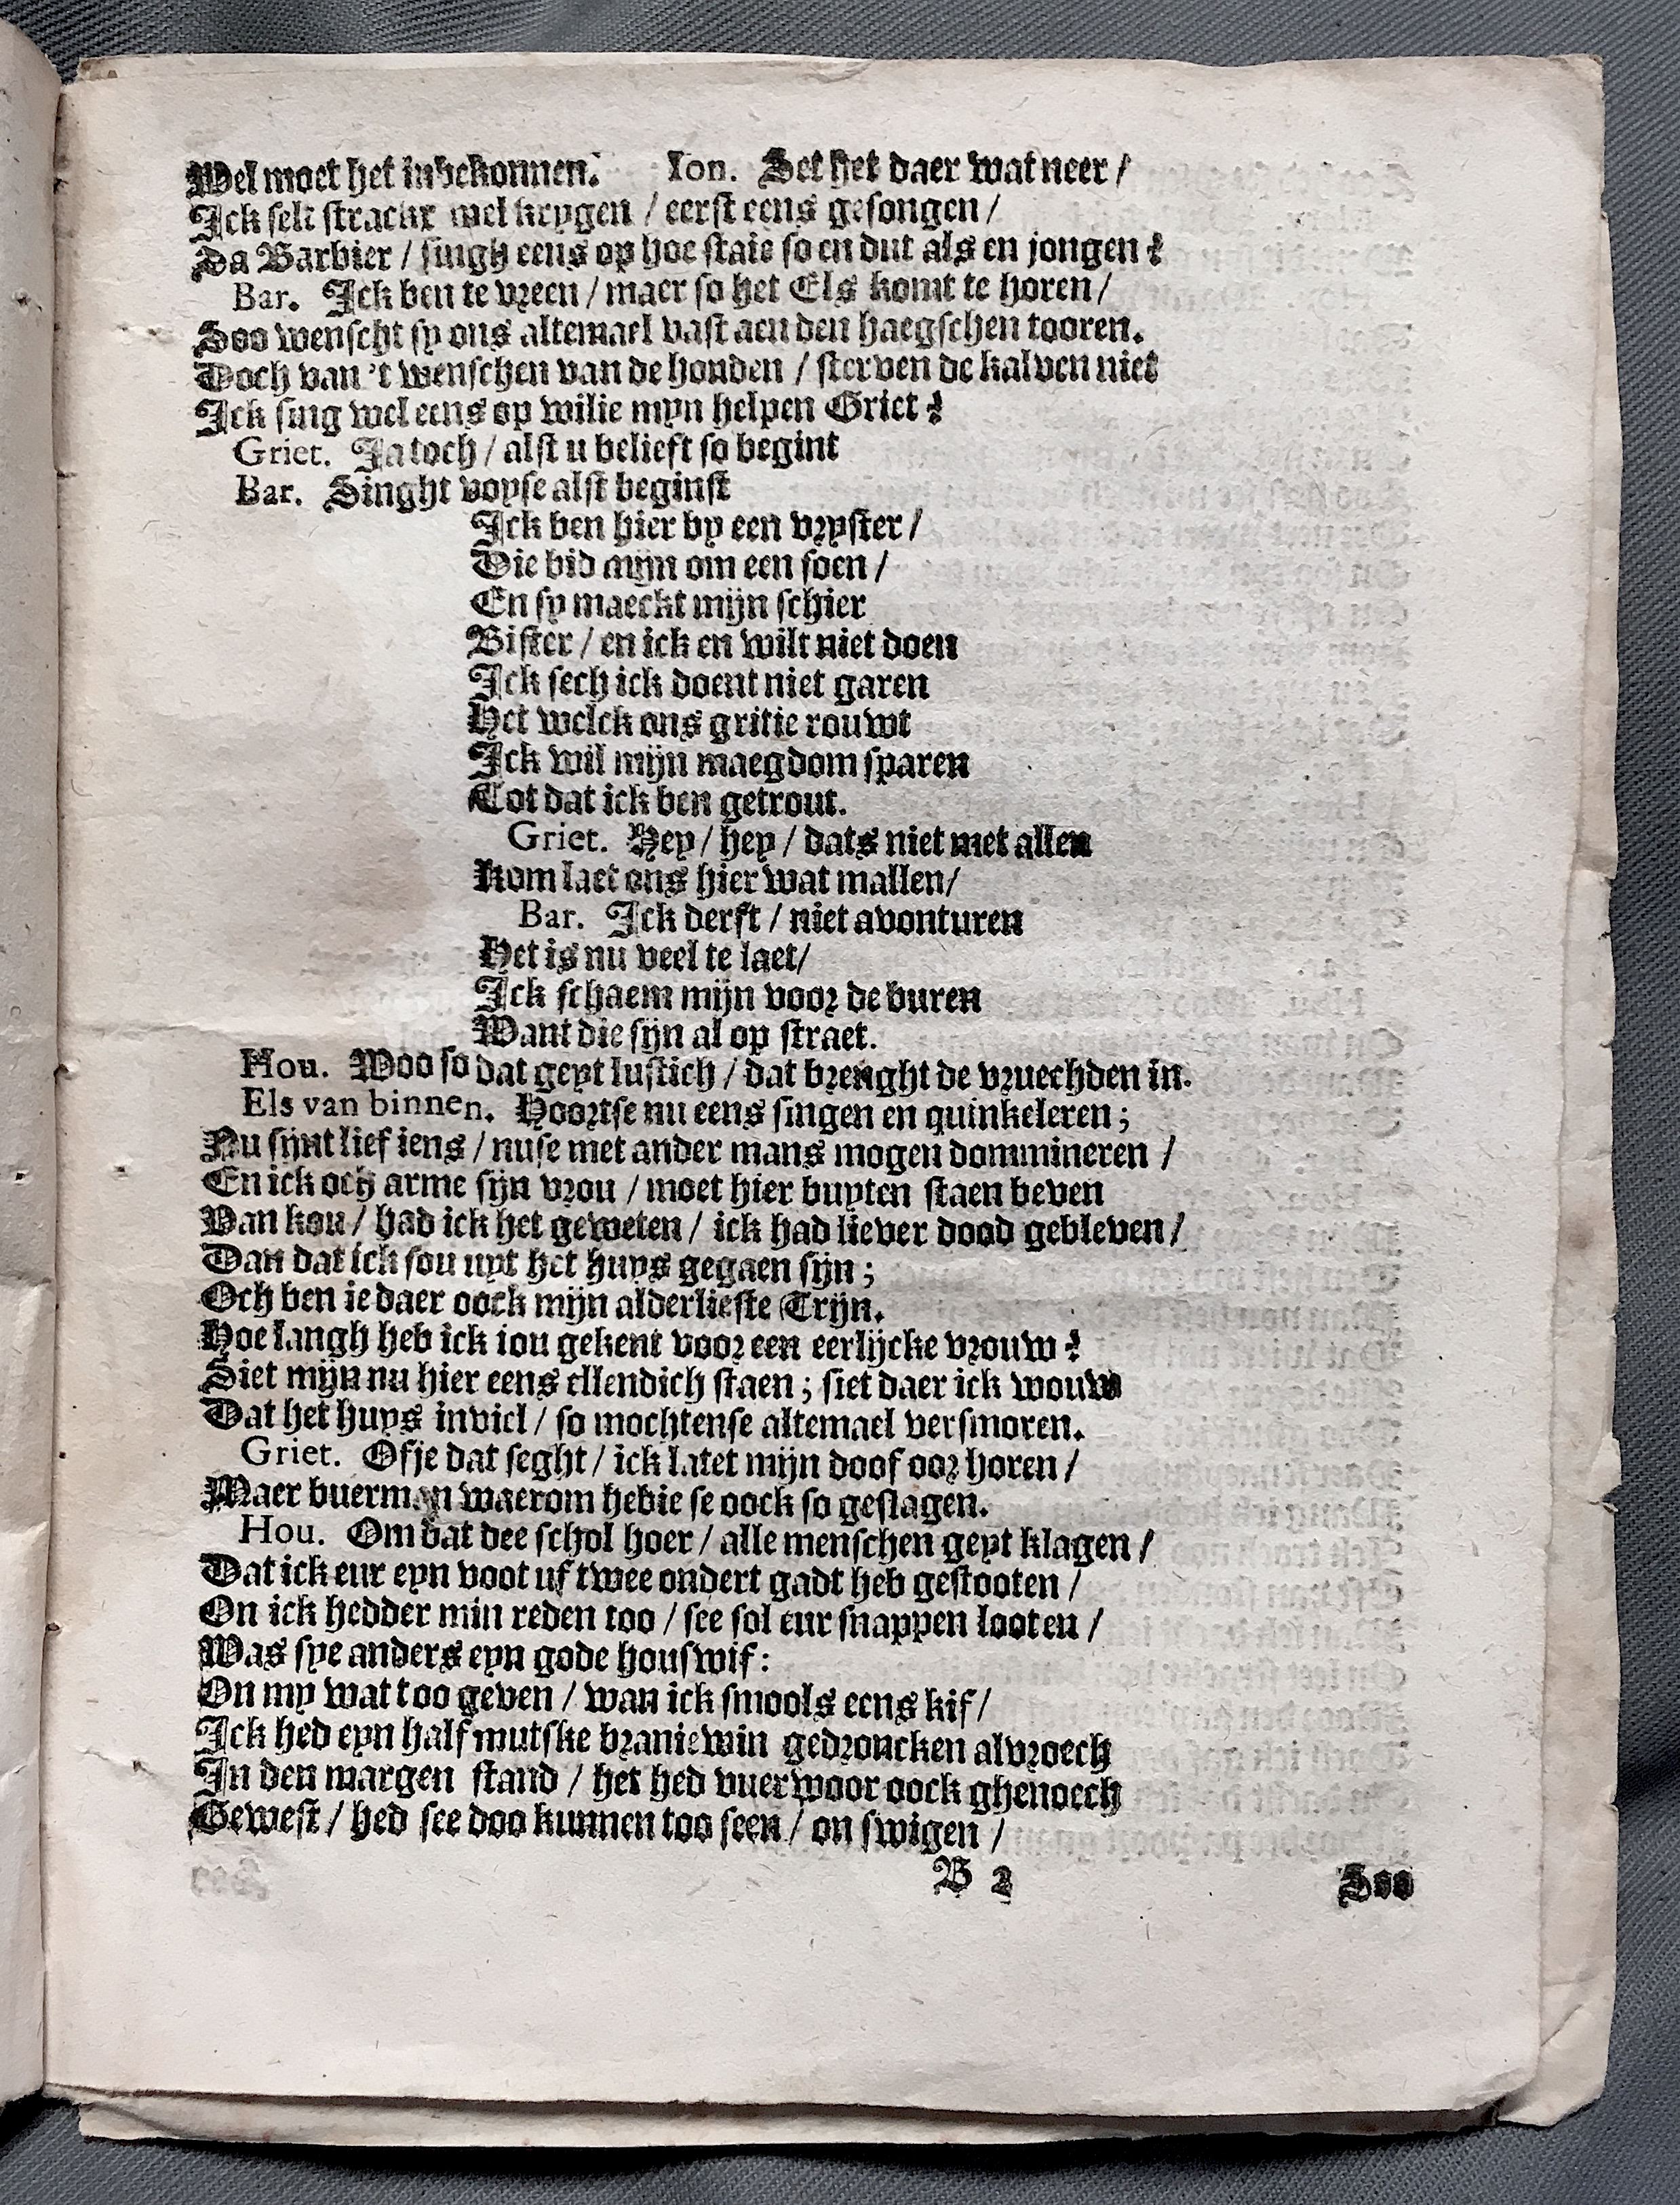 Wel moet het inbekonnen. Ion. Set het daer wat neer /
Ick selt strackx wel krygen / eerst eens gesongen /
Da Barbier / singh eens op hoe staje so en dut als en jongen?
Bar. Ick ben te vreen / maer so het Els komt te horen /
Soo wenscht sy ons altemael vast aen den haegschen tooren.
Doch van 't wenschen van de honden / sterven de kalven niet
Ick sing wel eens op wilje myn helpen Griet?
Griet. Ja toch / alst u belieft so begint
Bar. Singht voyse alst beginst
Ick ben hier by een vryster /
Die bid mijn om een soen /
En sy maeckt mijn schier
Bister / en ick en wilt niet doen
Ick sech ick doent niet garen
Het welck ons gritie rouwt
Ick wil mijn maegdom sparen
Tot dat ick ben getrout.
Griet. Hey / hey / dats niet met allen
Kom laet ons hier wat mallen /
Bar. Ick derft / niet avonturen
Het is nu veel te laet /
Ick schaem mijn voor de buren
Want die sijn al op straet.
Hou. Woo so dat geyt lustich / dat brenght de vruechden in.
Els van binnen. Hoortse nu eens singen en quinkeleren;
Nu sijnt lief iens / nuse met ander mans mogen dommineren /
En ick och arme sijn vrou / moet hier buyten staen beven
Van kou / had ick het geweten / ick had liever dood gebleven /
Dan dat ick sou uyt het huys gegaen sijn;
Och ben ie daer oock mijn alderlieste Trijn.
Hoe langh heb ick iou gekent voor een eerlijcke vrouw?
Siet mijn nu hier eens ellendich staen; siet daer ick wouw
Dat het huys inviel / so mochtense altemael versmoren.
Griet. Ofje dat seght / ick latet mijn doof oor horen /
Maer buerman waerom hebie se oock so geslagen.
Hou. Om dat dee schol hoer / alle menschen geyt klagen /
Dat ick eur eyn voot uf twee ondert gadt heb gestooten /
On ick hedder min reden too / see sol eur snappen looten /
Was sye anders eyn gode houswif:
On my wat too geven / wan ick smools eens kif /
Ick hed eyn half mutske braniewin gedroncken alvroech
In den margen stand / het hed vuerwoor oock ghenoech
Gewest / hed see doo kunnen too seen / on swigen /
B 2 Soo